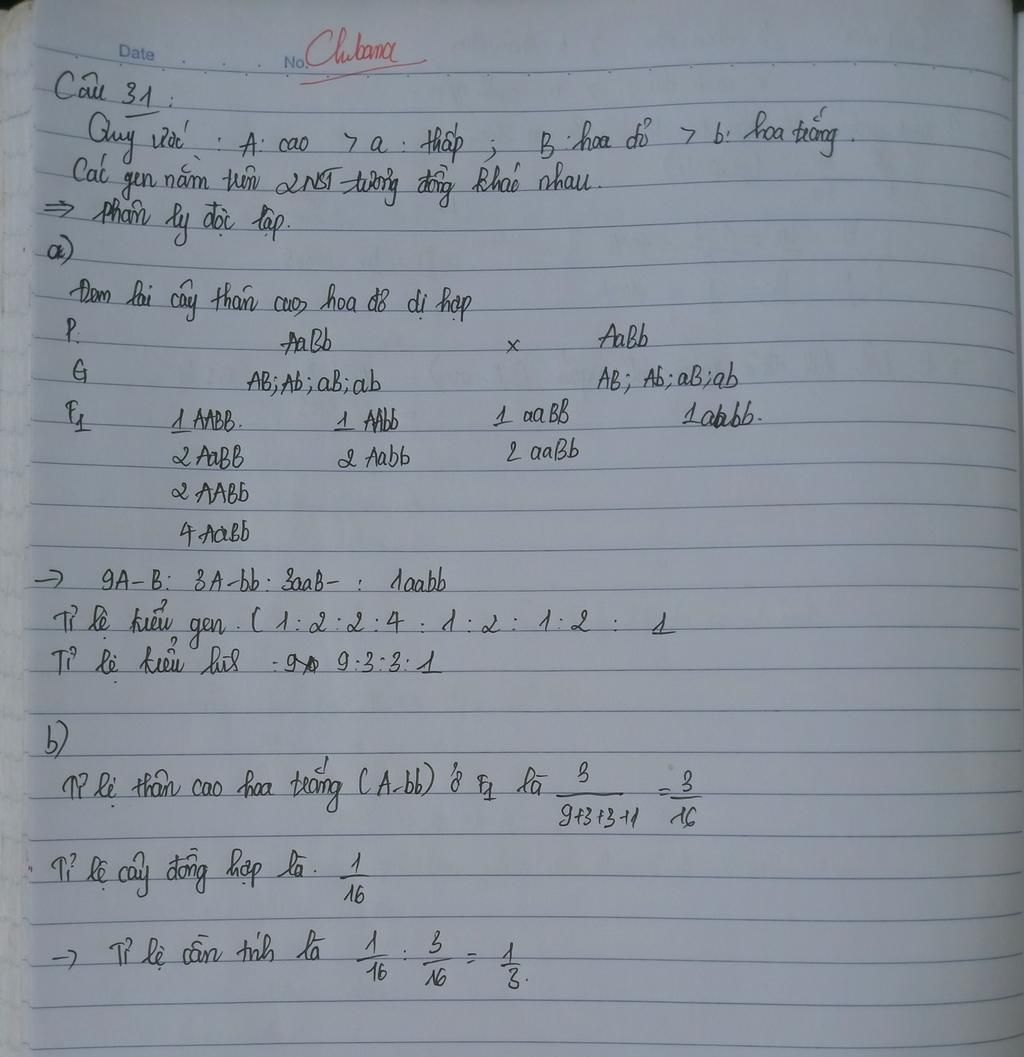 Date No. Chibana
Câu 31:
Quy ước: A: cao > a: thấp; B: hoa đỏ > b: hoa trắng.
Các gen nằm trên 2NST tương đồng khác nhau.
=> phân ly độc lập.
a)
Đem lai cây thân cao, hoa đỏ dị hợp
P: AaBb x AaBb
G AB; Ab; aB; ab AB; Ab; aB; ab
F1 1 AABB. 1 AAbb 1 aaBB 1aabb.
2 AaBB 2 Aabb 2 aaBb
2 AABb
4 AaBb
→ 9A-B: 3A-bb: 3aaB- : 1aabb
Tỉ lệ kiểu gen. (1:2:2:4:1:2:1:2:1
Tỉ lệ kiểu hình : 9:3:3:1
b)
Tỉ lệ thân cao hoa trắng (A-bb) ở F1 là 3/(9+3+3+1) = 3/16
Tỉ lệ cây đồng hợp là. 1/16
→ Tỉ lệ cần tính là 1/16 : 3/16 = 1/3.